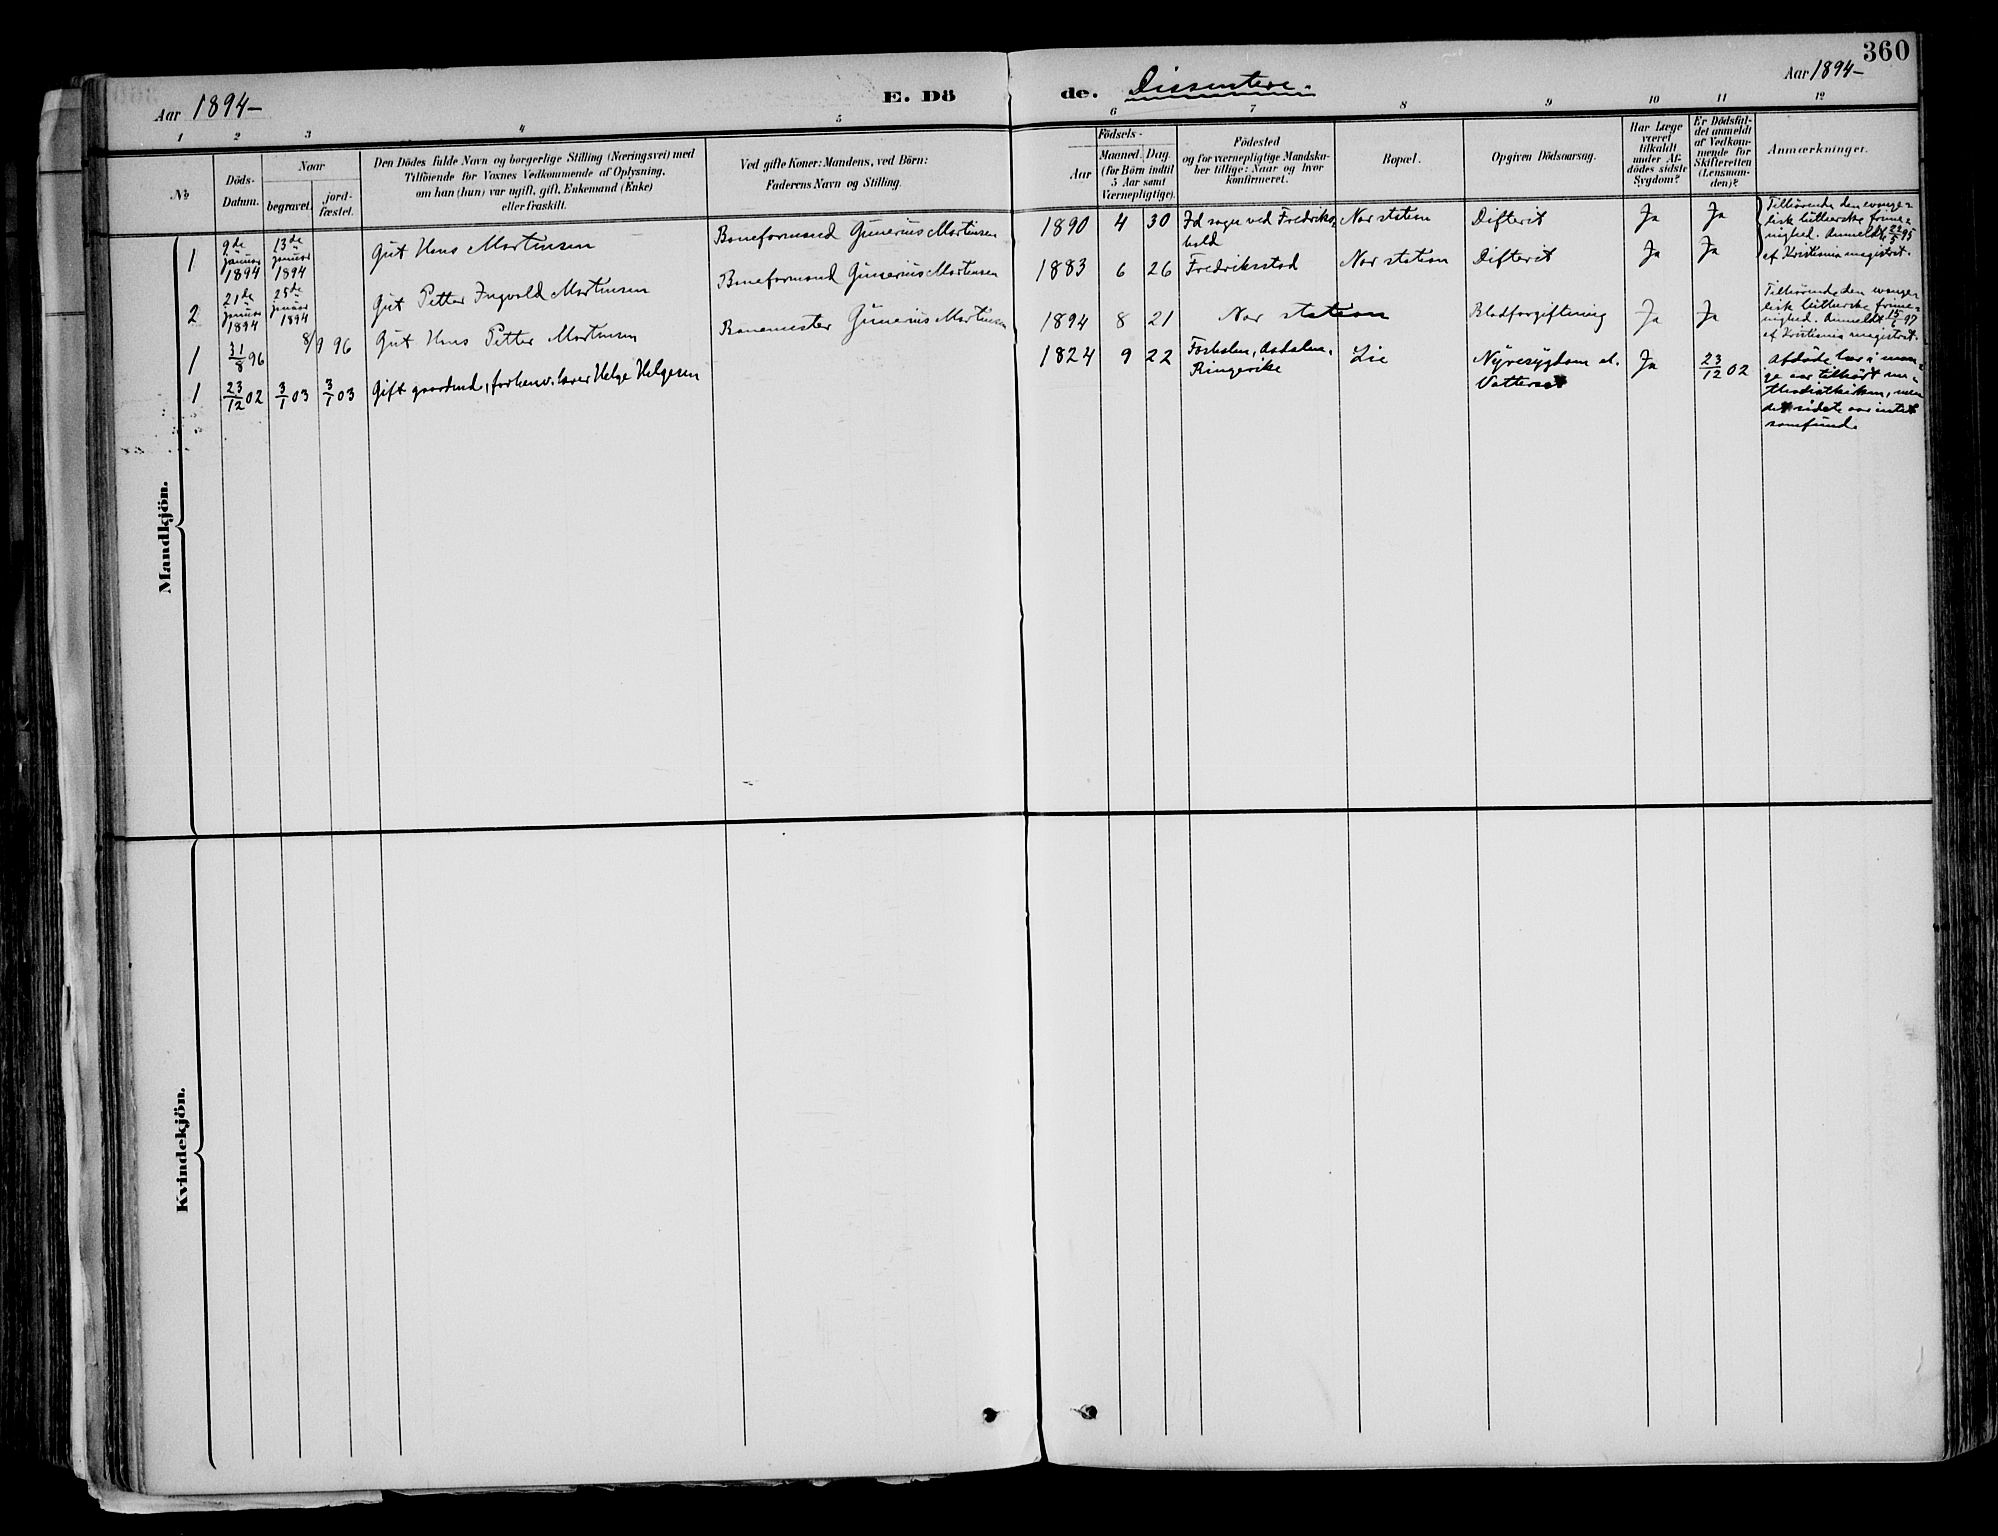 360
Aar 1894-
E. Dö
de. Dissentere.
Aar 1894-
1
2
3
4
5
6
7
8
9
10
11
12
No
Döds-
Datum.
Naar
begravet.
jord-
fæstet.
Den Dödes fulde Navn og borgerlige Stilling (Næringsvei) med
Tilföiende for Voxnes Vedkommende af Oplysning,
om han (hun) var ugift, gift, Enkemand (Enke)
eller fraskilt.
Ved gifte Koner: Mandens, ved Börn:
Faderens Navn og Stilling.
Födsels-
Aar
Maaned. Dag.
(for Börn indtil
5 Aar samt
Værnepligtige).
Födested
og for værnepligtige Mandska-
ber tillige: Naar og hvor
konfirmeret.
Bopæl.
Opgiven Dödsaarsag.
Har Læge
været
tilkaldt
under Af-
dödes sidste
Sygdom?
Er Dödsfal-
det anmeldt
af Vedkom-
mende for
Skifteretten
(Lensman-
den)?
Anmærkninger.
Mandkjön.
1
9de
januar
1894
13de
januar
1894
Gut Hans Martinsen
Baneformand Gunerius Martinsen
1890 4 30
Id sogn ved Fredriks-
hald
Nor station
Difterit
Ja
Ja
Tilhørende den evange-
lisk lutherske frime-
nighed. Anmeldt 22/5 95
af Kristiania magistrat.
2
21de
januar
1894
25de
januar
1894
Gut Petter Ingvald Martinsen
Baneformand Gunerius Martinsen
1883 6 26
Fredriksstad
Nor station
Difterit
Ja
Ja
1
31/8 96
8/9 96
Gut Hans Petter Martinsen
Banemester Gunerius Martinsen
1894 8 21
Nor station
Blodforgiftning
Ja
Ja
Tilhørende den evange-
lisk lutherske frime-
nighed. Anmeldt 15/6 97
af Kristiania magistrat.
1
23/12 02
3/1 03
3/1 03
Gift gaardmd, forhenv. lærer Helge Helgesen
1824 9 22
Aadalen,
Ringerike
Lie
Nyresygdom el.
Vattersot
Ja
23/12 02
Afdøde har i man-
ge aar tilhørt me-
thodistkirken, men
det sidste aar intet
samfund.
Kvindekjön.